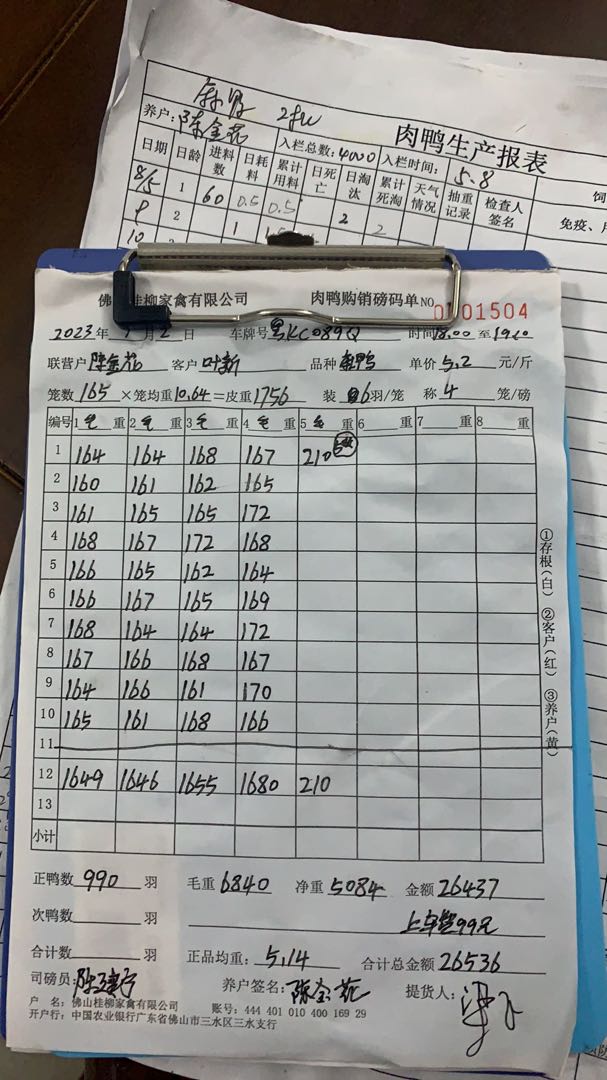 养户: 陈金花
肉鸭生产报表
入栏总数: 4000 入栏时间: 5.8
日期 日龄 进料数 日耗料 累计用料 日死亡 日淘汰 累计死淘 天气情况 抽重记录 检查人签名 免疫、
8/5 1 60 0.5 0.5
9 2 2 2
10 1
佛山桂柳家禽有限公司 肉鸭购销磅码单 NO 0001504
2023年7月2日 车牌号 粤KC089Q 时间18:00至1910
联营户 陈金花 客户 叶新 品种 鸭 单价5.2元/斤
笼数165×笼均重10.64=皮重1756 装6羽/笼 称4笼/磅
编号 1毛重 2毛重 3毛重 4毛重 5毛重 6 重 7 重 8 重
1 164 164 168 167 210
2 160 161 162 165
3 161 165 165 172
4 168 167 172 168
5 166 165 162 164
6 166 167 165 169
7 168 164 164 172
8 167 166 168 167
9 164 166 161 170
10 165 161 168 166
11
12 1649 1646 1655 1680 210
13
小计
正鸭数990羽 毛重6840 净重5084 金额26437
次鸭数 羽 上车费99元
合计数 羽 正品均重: 5.14 合计总金额26536
司磅员: 养户签名: 陈金花 提货人:
户 名: 佛山桂柳家禽有限公司 账号: 444 401 010 400 169 29
开户行: 中国农业银行广东省佛山市三水区三水支行
①存根(白) ②客户(红) ③养户(黄)